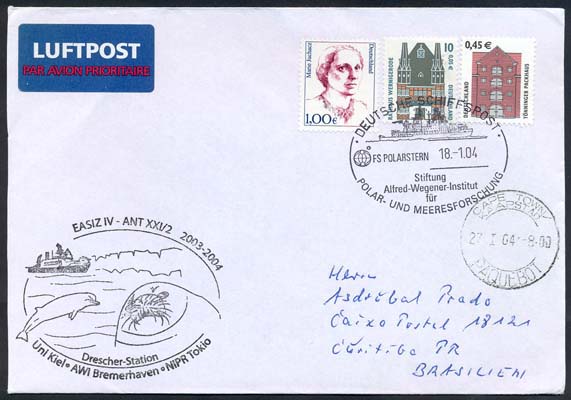 LUFTPOST
PAR AVION PRIORITAIRE
Marie Juchacz
Deutschland
1,00€
10
0,05 €
RATHAUS WERNIGERODE
0,45 €
DEUTSCHLAND
TÖNNINGER PACKHAUS
DEUTSCHE SCHIFFSPOST
FS POLARSTERN 18.-1.04
Stiftung
Alfred-Wegener-Institut
für
POLAR- UND MEERESFORSCHUNG
CAPE TOWN
KAAPSTAD
27 I 04 -8-00
PAQUEBOT
EASIZ IV - ANT XXI/2 2003-2004
Drescher-Station
Uni Kiel • AWI Bremerhaven • NIPR Tokio
Herrn
Asdrúbal Prado
Caixa Postal 18121
Curitiba PR
BRASILIEN